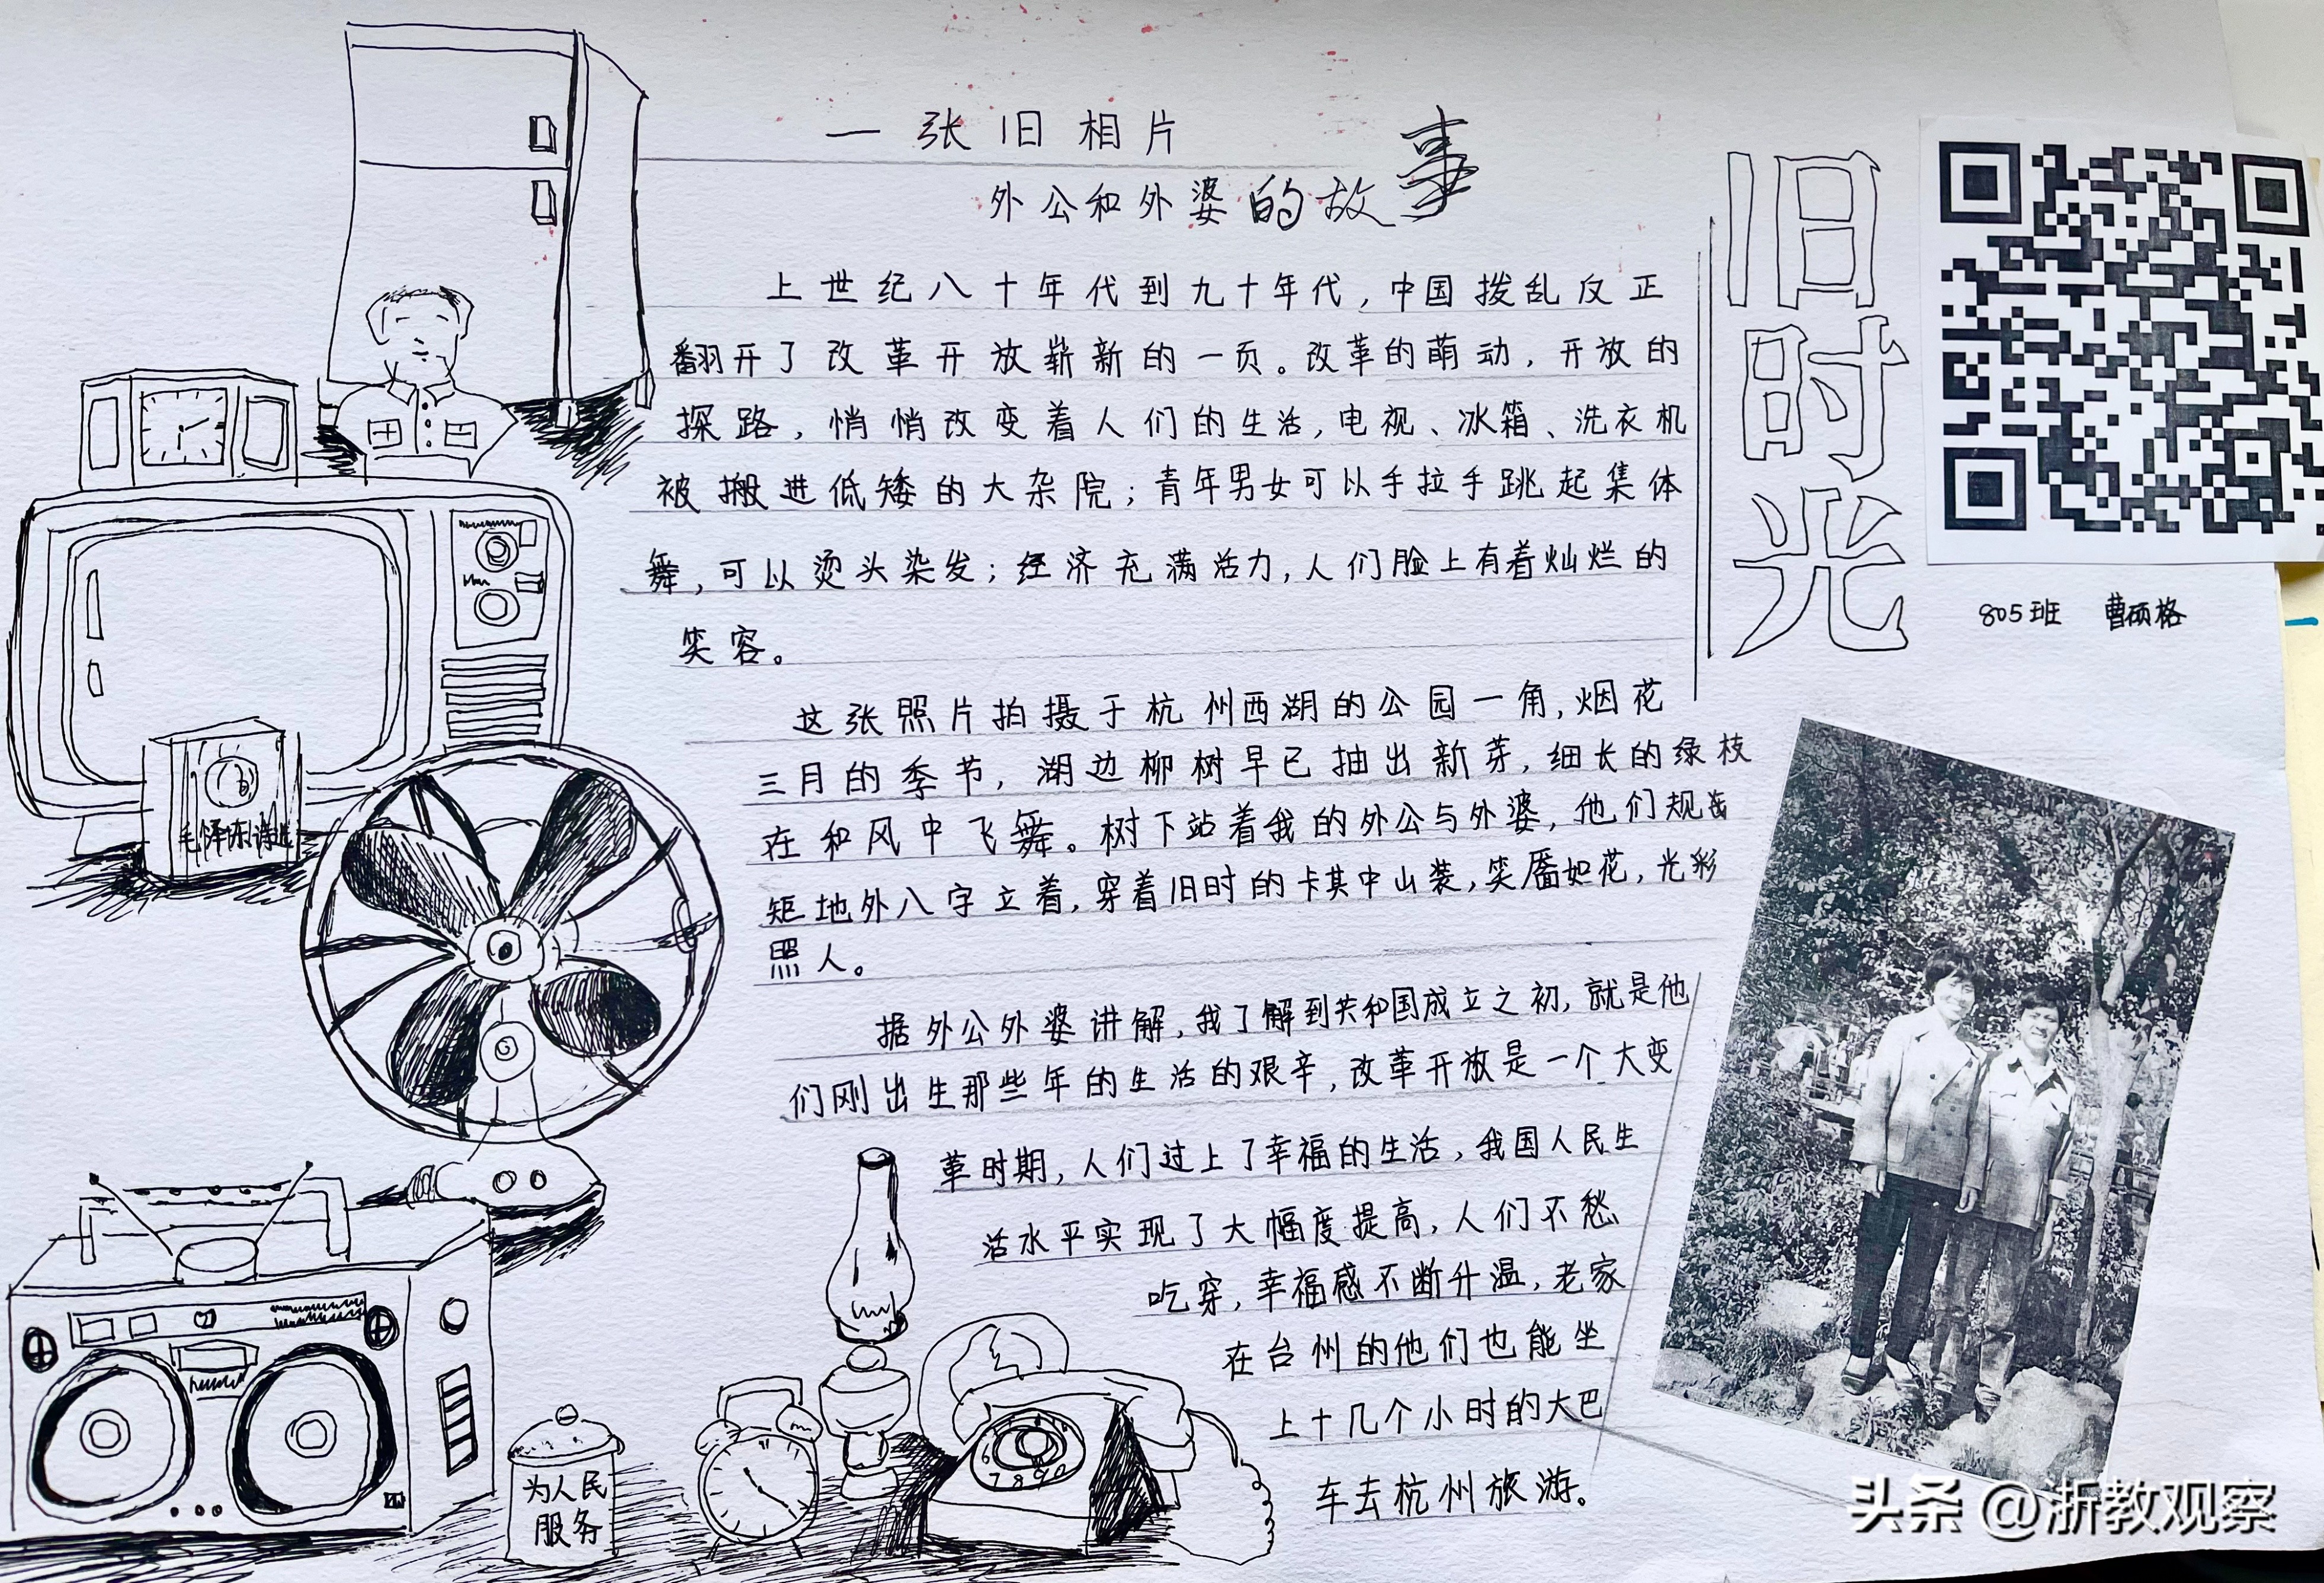 一张旧相片
外公和外婆的故事
上世纪八十年代到九十年代,中国拨乱反正
翻开了改革开放崭新的一页。改革的萌动,开放的
探路,悄悄改变着人们的生活,电视、冰箱、洗衣机
被搬进低矮的大杂院;青年男女可以手拉手跳起集体
舞,可以烫头染发;经济充满活力,人们脸上有着灿烂的
笑容。
这张照片拍摄于杭州西湖的公园一角,烟花
三月的季节,湖边柳树早已抽出新芽,细长的绿枝
在和风中飞舞。树下站着我的外公与外婆,他们规规
矩地外八字立着,穿着旧时的卡其中山装,笑靥如花,光彩
照人。
据外公外婆讲解,我了解到共和国成立之初,就是他
们刚出生那些年的生活的艰辛,改革开放是一个大变
革时期,人们过上了幸福的生活,我国人民生
活水平实现了大幅度提高,人们不愁
吃穿,幸福感不断升温,老家
在台州的他们也能坐
上十几个小时的大巴
车去杭州旅游。
旧时光
805班 曹硕格
毛泽东诗选
为人民
服务
7890
头条 @浙教观察